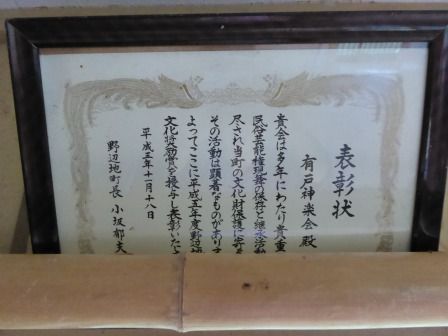 表彰状
有戸神楽会 殿
貴会は多年にわたり貴重
民俗芸能権現舞の保存と継承活動
尽され当町の文化財保護に寄
その活動は顕著なものがあります
よってここに平成五年度野辺地
文化奨励賞を授与し表彰いたしま
平成五年十一月十八日
野辺地町長 小坂郁夫